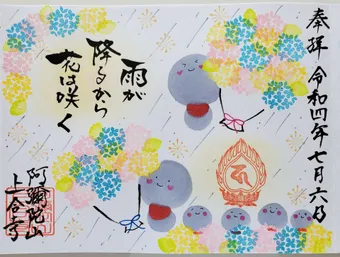 奉拝 令和四年七月六日
雨が
降るから
花は咲く
阿彌陀山
上合寺